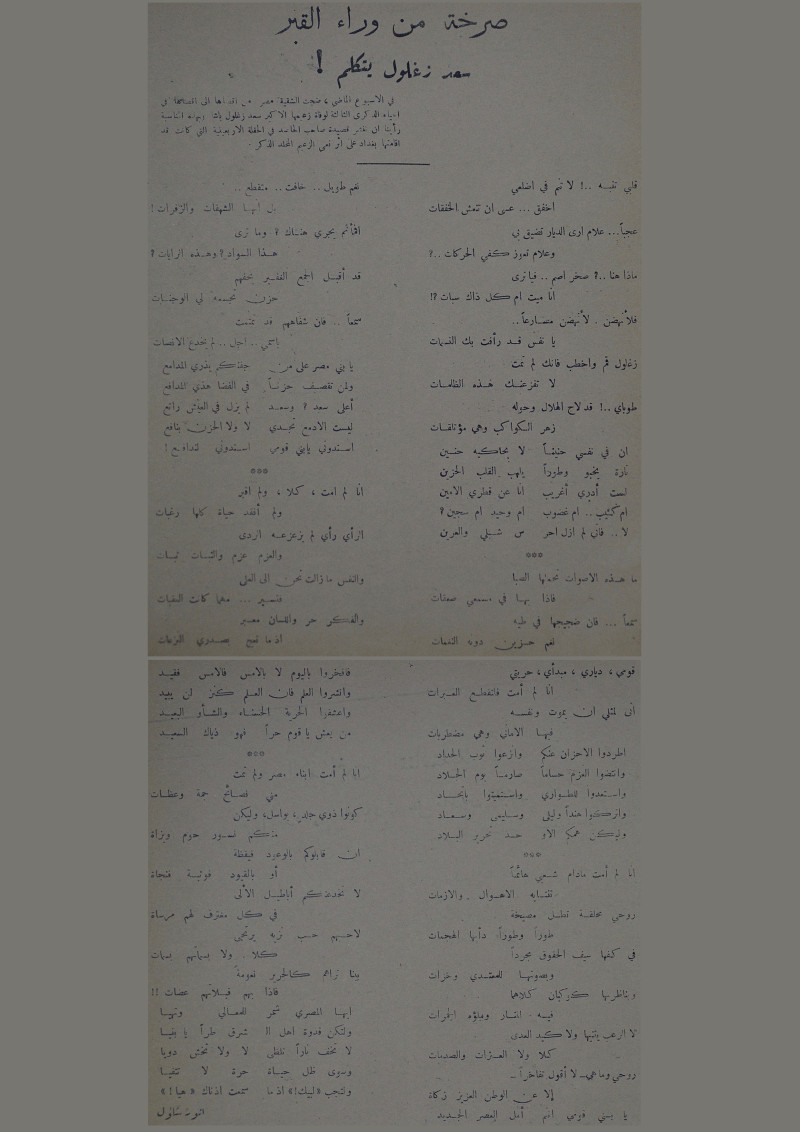 صرخة من وراء القبر
سعد زغلول يتكلم !
في الاسبوع الماضي ، ضجت الشقيقة مصر من اقصاها الى اقصاها في
الذكرى الثالثة لوفاة زعيمها الاكبر سعد زغلول باشا وبهذه المناسبة
رأينا ان ننشر قصيدة صاحب الحاصد في الحفلة الاربعينية التي كانت قد
اقامتها بغداد على اثر نعي الزعيم المخلد الذكر .
قلبي تنبه ..! لا تنم في اضلعي
اخفق ... عسى ان تنعش الخفقات
عجباً... علام ارى الديار تضيق بي
وعلام تعوز كفي الحركات ..؟
ماذا هنا ..؟ صخر اصم .. فيا ترى
انا ميت ام كل ذاك سبات ؟!
فلأنهضن . لأنهضن مصارعاً ..
يا نفس قد رأفت بك النسمات
زغلول قم واخطب فانك لم تمت
لا تفزعنك هذه الظلمات
طوباي ..! قد لاح الهلال وحوله
زهر الكواكب وهي مؤتلقات
ان في نفسي حنيناً لا يحاكيه حنين
تارة يخبو وطوراً يلهب القلب الحزين
لست أدري أغريب انا عن قطري الامين
ام كئيب .. ام غضوب ام وحيد ام سجين ؟
لا .. فاني لم ازل احر س شبلي والعرين
***
ما هذه الاصوات تحملها الصبا
فاذا بها في مسمعي صعقات
سمعاً ... فان ضجيجها في طيه
نغم حزين دونه النغمات
نغم طويل .. خافت .. متقطع ..
بل انها الشهقات والزفرات !
أفمأتم يجري هناك ؟ وما نرى
هذا السواد ؟ وهذه الرايات ؟
قد أقبل الجمع الغفير يحفهم
حزن تجسمه لي الوجنات
سمعاً .. فان شفاههم قد تمتمت
باسمي .. اجل .. لم يخدع الانصات
يا بني مصر على من جفنكم يذري المدامع
ولمن تقصف حزناً في الفضا هذي المدافع
أعلى سعد ؟ وسعد لم يزل في العيش راتع
ليست الادمع تجدي لا ولا الحزن بنافع
اسندوني يا بني قومي اسندوني لندافع !
***
انا لم امت ، كلا ، ولم اقبر
ولم أفقد حياة كلها رغبات
الرأي رأي لم يزعزعه الردى
والعزم عزم والثبات ثبات
والنفس ما زالت تحن الى العلى
فتسير ... مهما كانت العقبات
والفكر حر واللسان معبر
اذ ما تعج بصدري النزعات
قومي ، دياري ، مبدأي ، حريتي
انا لم أمت فلتقطع العبرات
أنى لمثلي ان يموت ونفسه
فيها الاماني وهي مضطربات
اطردوا الاحزان عنكم وانزعوا ثوب الحداد
وانتضوا العزم حساماً صارماً يوم الجلاد
واستعدوا للطواري واستميتوا باتحاد
واتركوا هنداً وليلى وسليمى وسعاد
وليكن همكم الاو حد تحرير البلاد
***
انا لم أمت مادام شعبي هائماً
تنتابه الاهوال والازمات
روحي محلقة تطل مصيخة
طوراً وطوراً دأبها الهجمات
في كفها سيف الحقوق مجرداً
وبناظريها كوكبان كلاهما
لا الرعب يثنيها ولا كيد العدى
كلا ولا العثرات والصدمات
روحي وما هي.. لا أقول تفاخراً ..
إلا عن الوطن العزيز زكاة
يا بني قومي انتم أمل العصر الجديد
فافخروا باليوم لا بالأمس فالامس فقيد
وانشروا العلم فان العلم كنز لن يبيد
واعشقوا الحرية الحسناء والشأو البعيد
من يعش يا قوم حراً فهو ذياك السعيد
***
انا لم أمت ابناء مصر ولم تمت
مني نصائح جمة وعظات
كونوا ذوي جلد ، بواسل ، وليكن
منكم نسور حوم وبزاة
ان قابلوكم بالوعود فيقظة
أو بالقيود فوثبة فنجاة
لا تخدعنكم أباطيل الألى
في كل مفترف لهم مرساة
كلا . ولا بسماتهم بسمات
بينا تراهم كالحرير نعومة
فاذا بهم !!
ايها المصري شمر للمعالي وتهيا
ولتكن قدوة اهل الـ شرق طراً يا بنيا
لا تخف ناراً تلظى لا ولا تخش دويا
وسوى ظل حياة حرة لا تتفيا
ولتجب «لبيك!» اذ ما سمعت اذناك «هيا!»
انور شاؤل